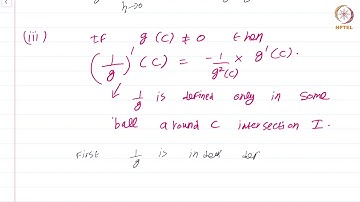 h→0
(iii) If g(c) ≠ 0 then
(1/g)'(c) = -1/g²(c) × g'(c).
1/g is defined only in some
ball around c intersection I.
First 1/g is indeed def
NPTEL